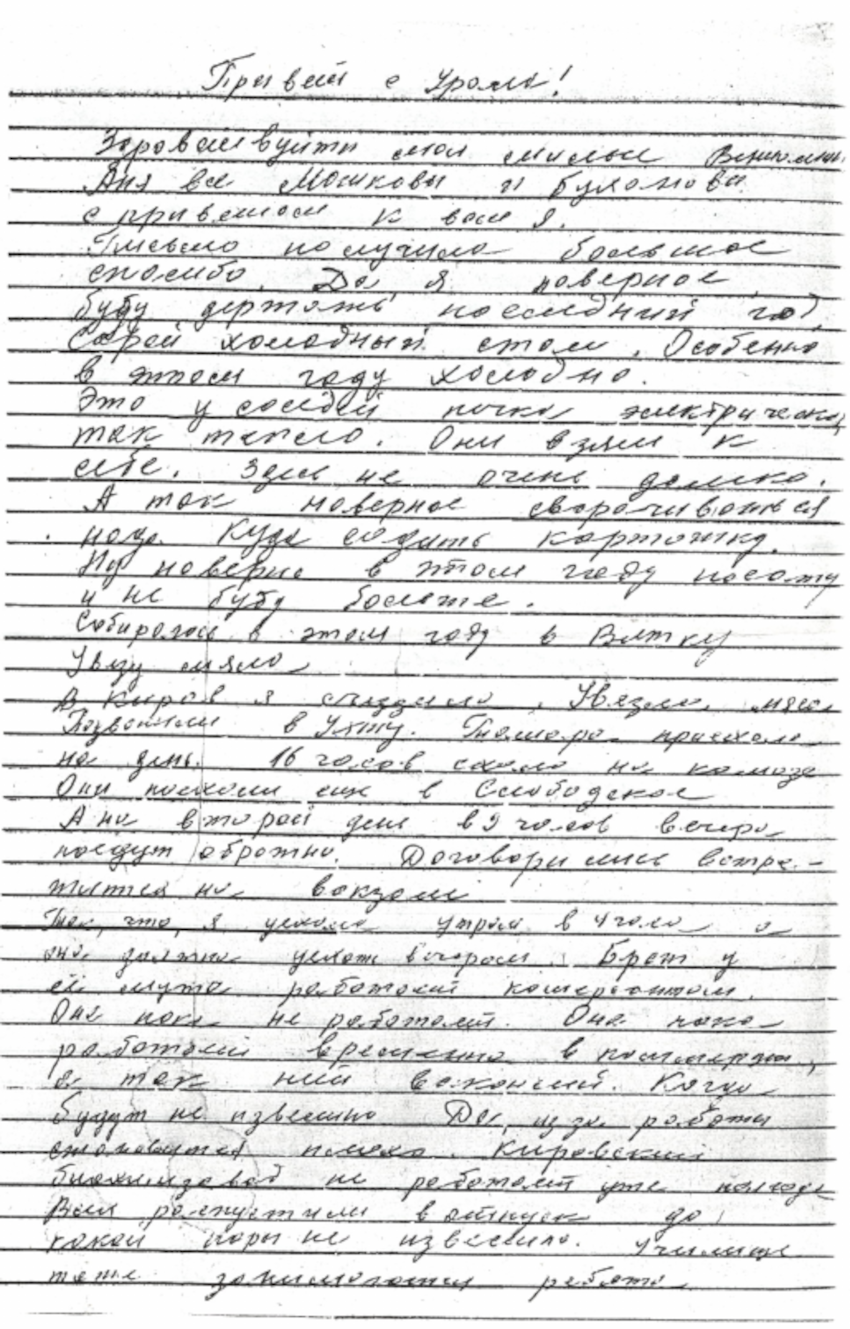 Привет с Урала!
Здравствуйти мои милые
Аня все Мошковы и Булановы
с приветом к вам я.
Письмо получила большое
спасибо. Да я наверное
буду держать последний год
Сарай холодный стал. Особенно
в этом году холодно.
Это у соседей печка электрическая
так тепло. Они взяли к
себе. Здесь не очень далеко.
А так наверное сворачиваться
надо. Куда садить картошку.
Ну наверно в этом году посажу
и не буду больше.
Собиралась в этом году в Вятку
Увезу мяло
В Киров я съездила. Увезла мяса
Позвонили в Ухту. Тамара приехала
на день. 16 часов ехала на камазе
Они поехали еще в Слободское
А на второй день в 9 часов вечера
поедут обратно. Договорились встре-
титься на вокзале
Так, что, я уехала утром в 4 часа а
она должна уехать вечером. Брат у
ей мужа работает
Она пока не работает. Она пока
работает временно в
а так ней вакансий. Когда
будут не известно Да, из за работы
становится плохо. Кировский
биохимзавод не работает уже полгода
Всех распустили в отпуск до
какой поры не известно. Училище
тоже занималося работа